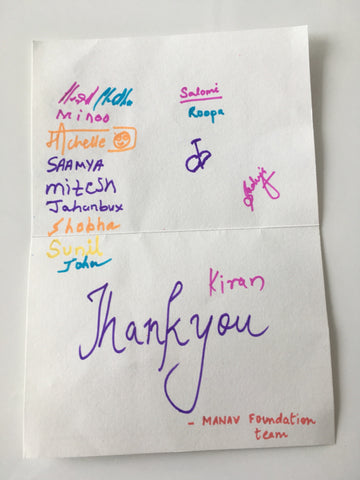 Medha
Minoo
Michelle
SAAMYA
mitesh
Jahanbux
Shobha
Sunil
John
Salomi
Roopa
Kiran
Thank you
- MANAV Foundation
team